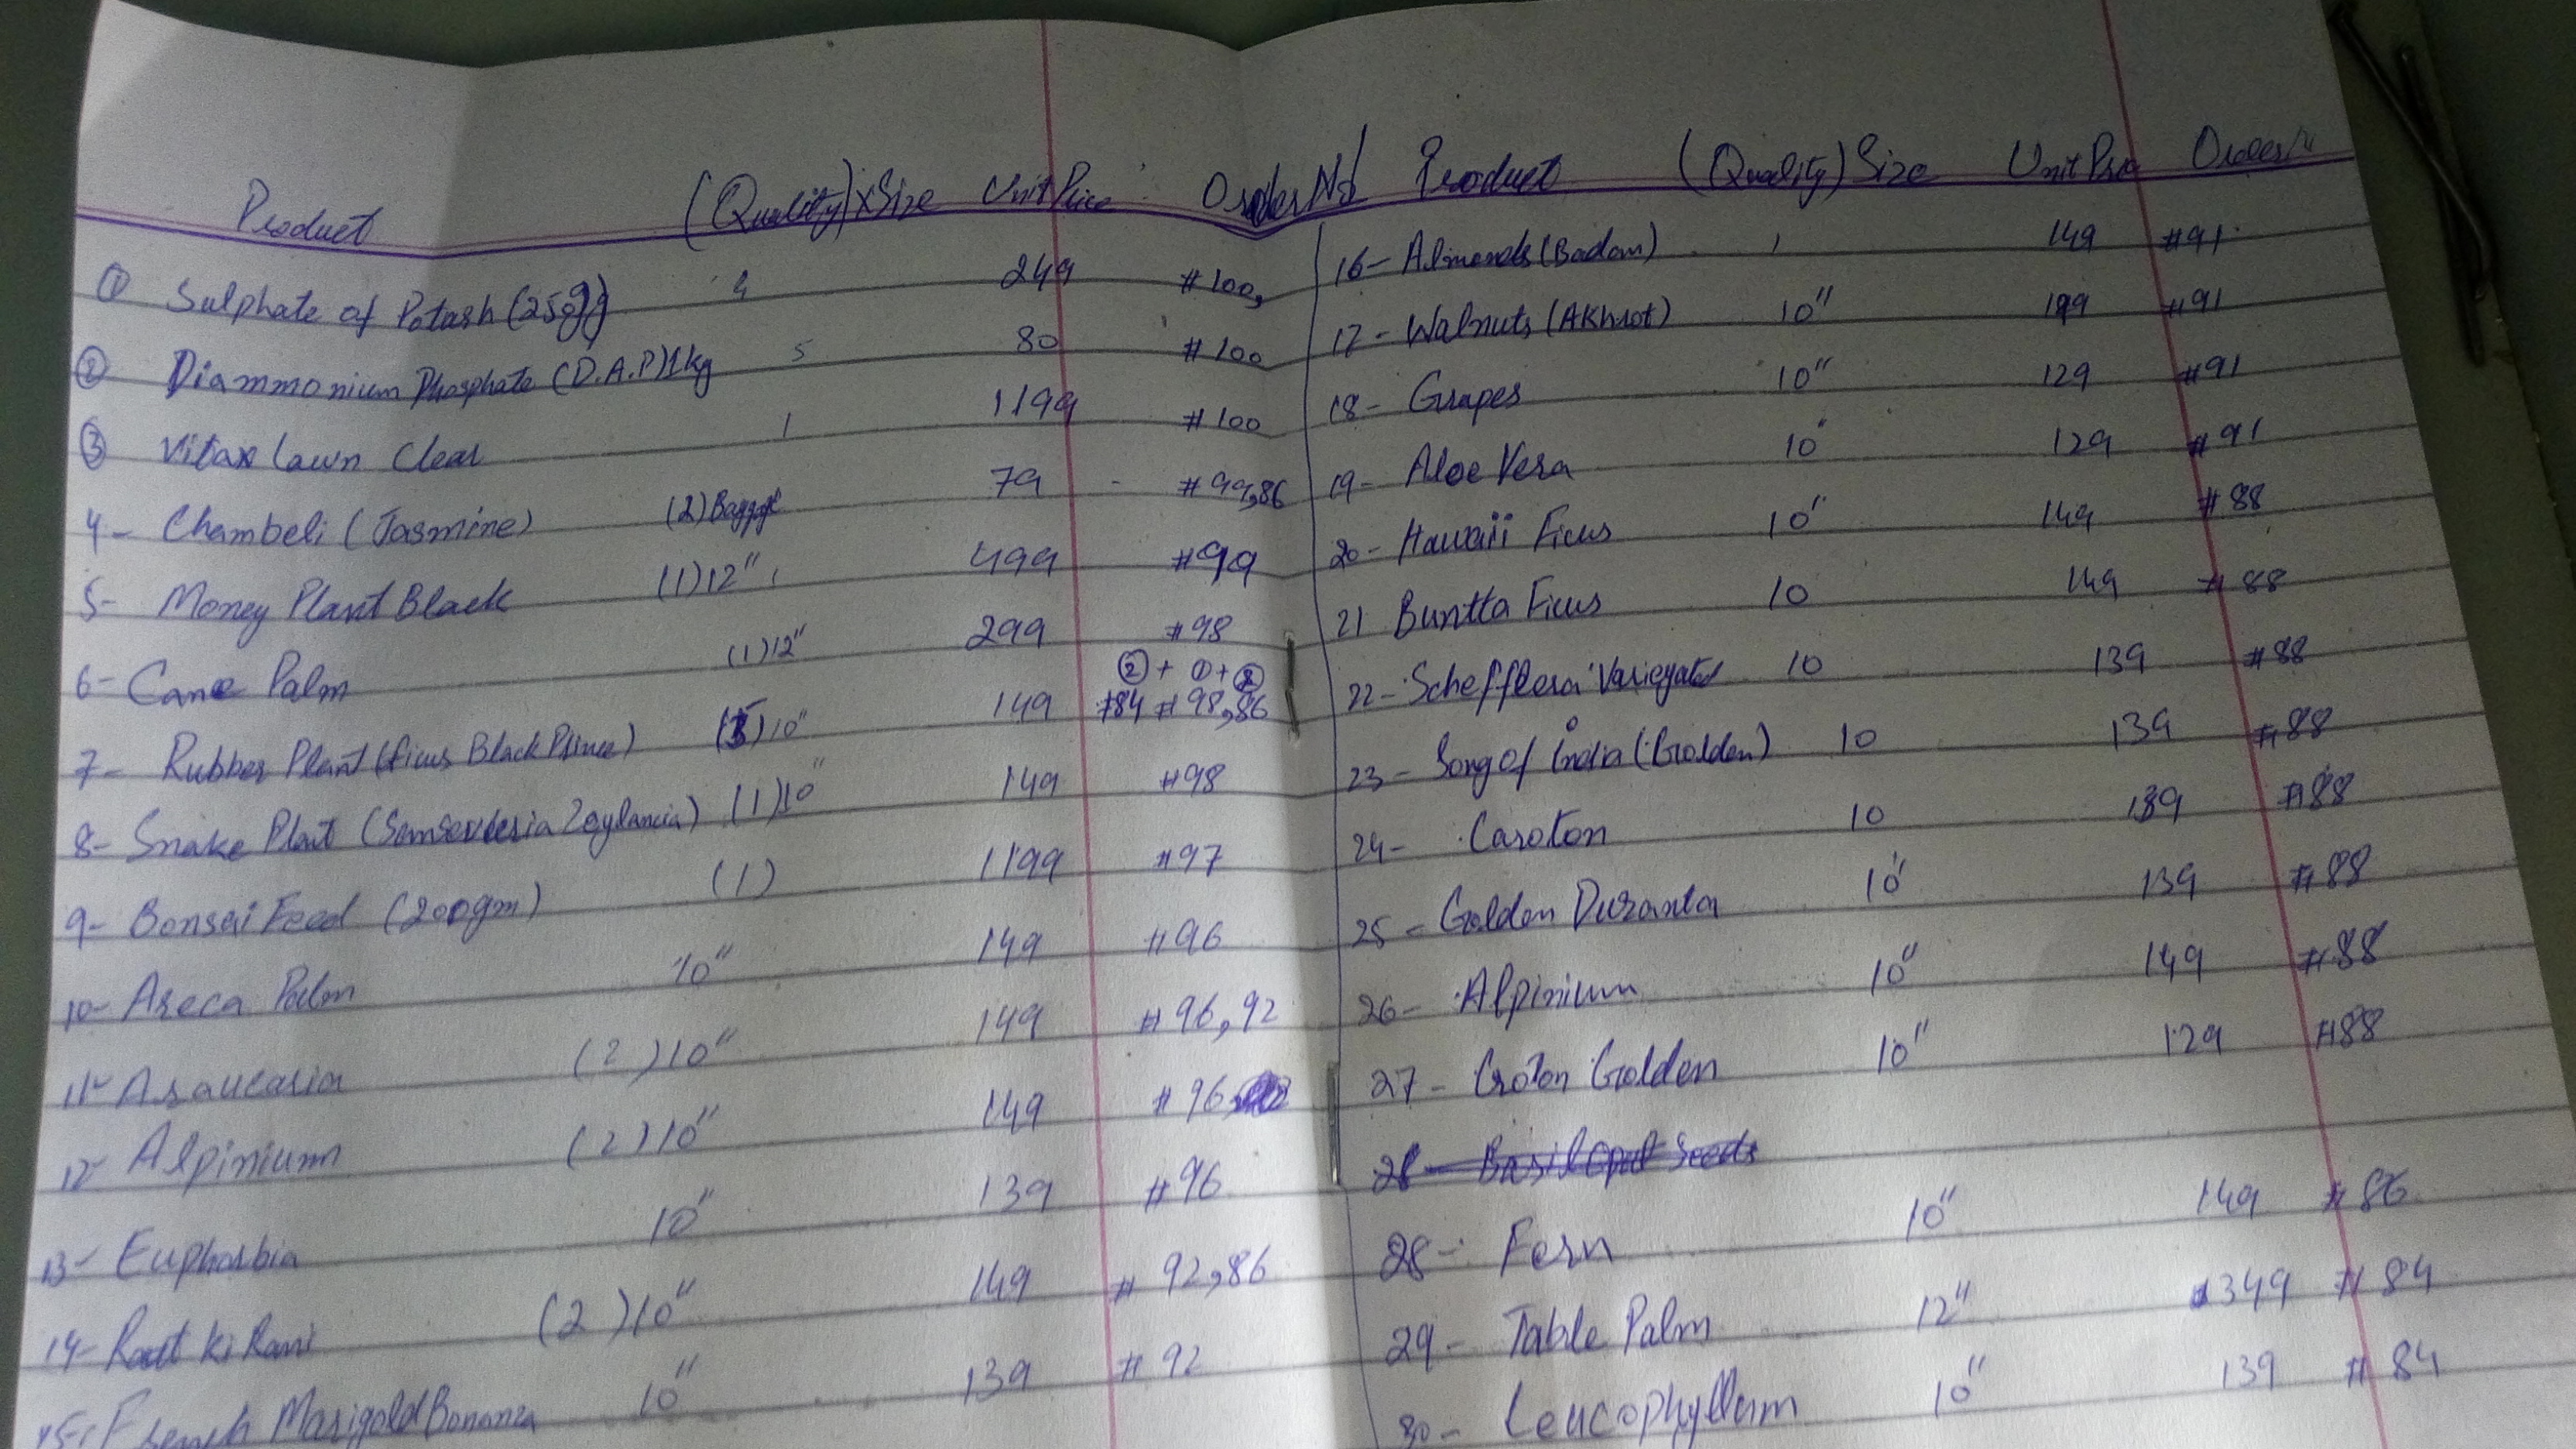 Product (Quality)xSize Unit Price Order No
① Sulphate of Potash (250g) 4 249 #100,
② Diammonium Phosphate (D.A.P)1kg 5 80 #100
③ Vitax Lawn Clear 1 1199 #100
4- Chambeli (Jasmine) (2) 79 - #99,86
5- Money Plant Black (1)12" 499 #99
6- Cane Palm (1)12" 299 #98
②+ ①+②
7- Rubber Plant (ficus Black Prince) (5)10" 149 #84 #98,86
8- Snake Plant (Sansevieria Zeylancia) (1)10" 149 #98
9- Bonsai Feed (200gm) (1) 1199 #97
10- Areca Palm 10" 149 #96
11- Araucaria (2)10" 149 #96,92
12- Alpinium (2)10" 149 #96
13- Euphorbia 10" 139 #96
14- Raat Ki Rani (2)10" 149 #92,86
15- French Marigold Bonanza 10" 139 #92
Product (Quality) Size Unit
16- Almonds (Badam) 1 149 #91
17- Walnuts (Akhrot) 10" #91
18- Grapes 10" 129 #91
19- Aloe Vera 10" 129 #91
20- Hawaii Ficus 10" 149 #88
21 Buntta Ficus 10 149 #88
22- Schefflera Variegated 10 139 #88
23- Song of India (Golden) 10 139 #88
24- Caroton 10 139 #88
25- Golden Duranta 10" 139 #88
26- Alpinium 10" 149 #88
27- Croton Golden 10" 129 #88
28- Fern 10" 149 #86
29- Table Palm 12" 349 #84
30- Leucophyllum 10" 139 #84